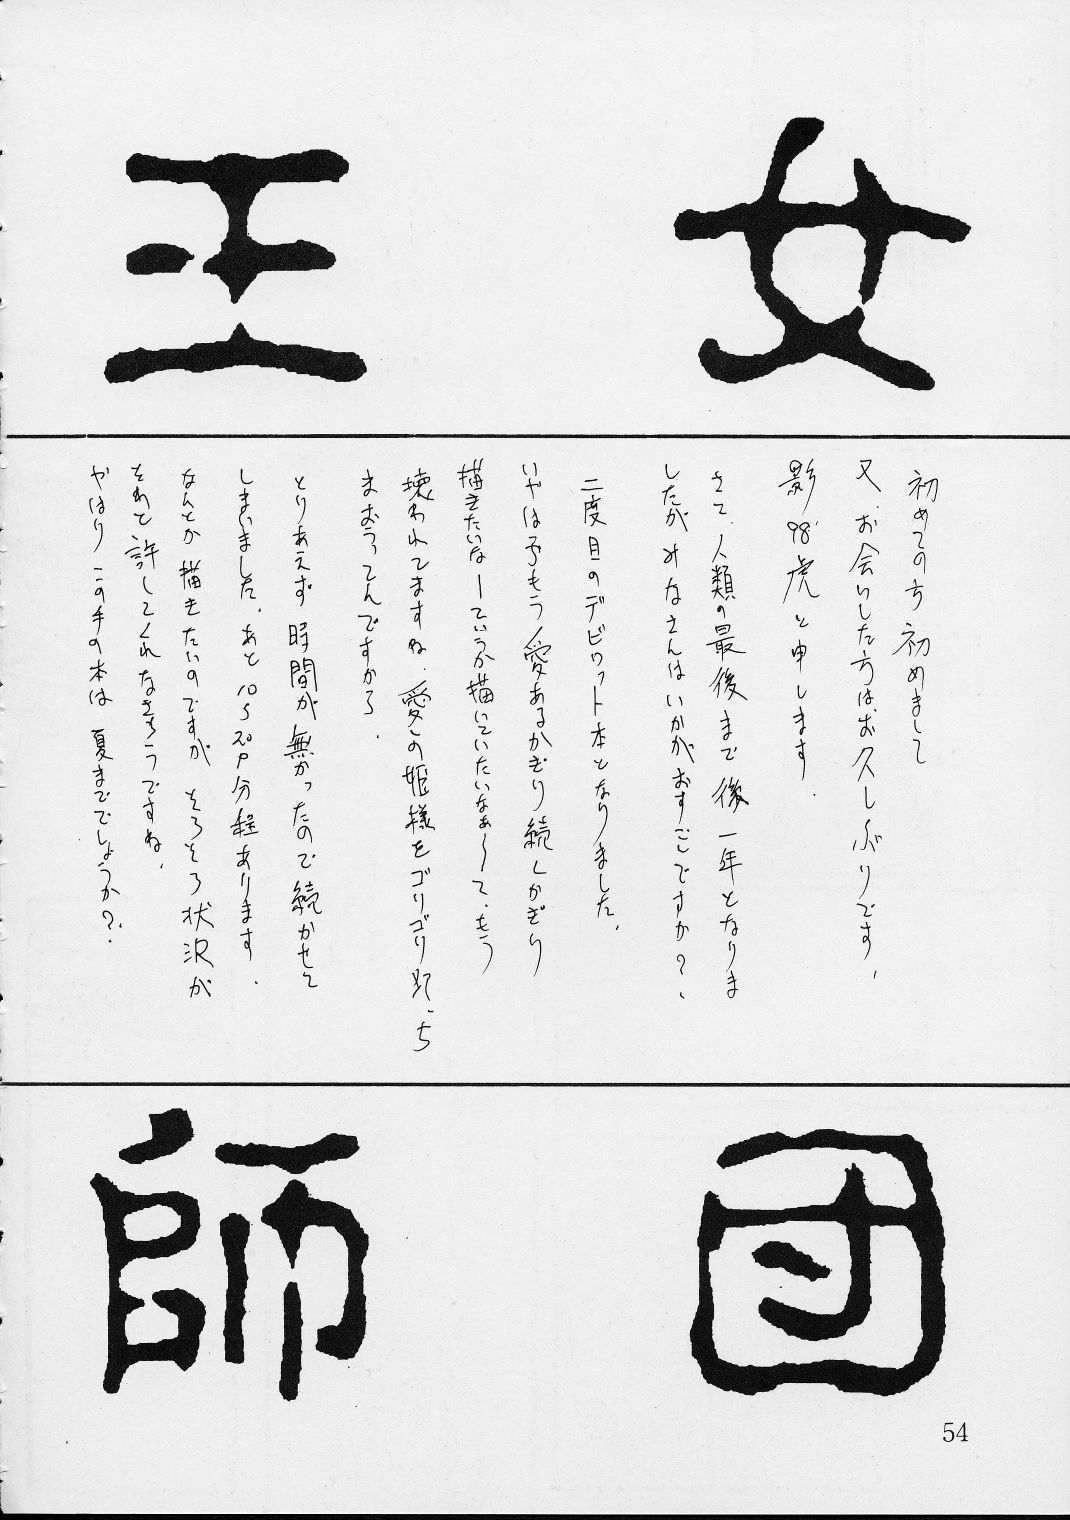 女王
初めての方初めまして
又、お会いした方は、お久しぶりです、
影98'虎と申します.
さて、人類の最後まで後一年となりま
したがみなさんはいかがおすごしですか?、
二度目のデビット本となりました、
いやは予もう愛あるかぎり続くかぎり
描きたいなーていうか描いていたいなぁ〜て、もう
壊われてますね、愛の姫様をゴリゴリ
まおうってんですから、
とりあえず時間が無かったので続かせて
しまいました、あと10〜20P分程あります.
なんとか描きたいのですがそろそろ状況が
それを許してくれなさそうですね、
やはりこの手の本は夏まででしょうか?、
団師
54